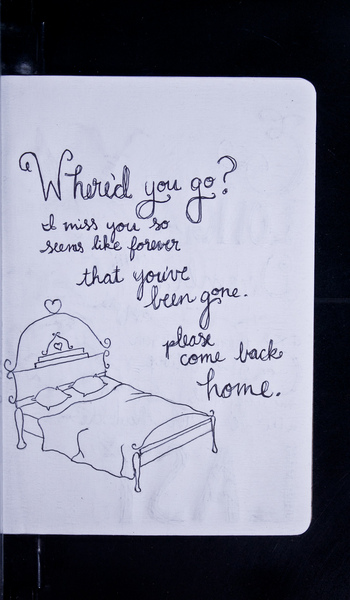 Where'd you go?
I miss you so
seems like forever
that you've
been gone.
please
come back
home.